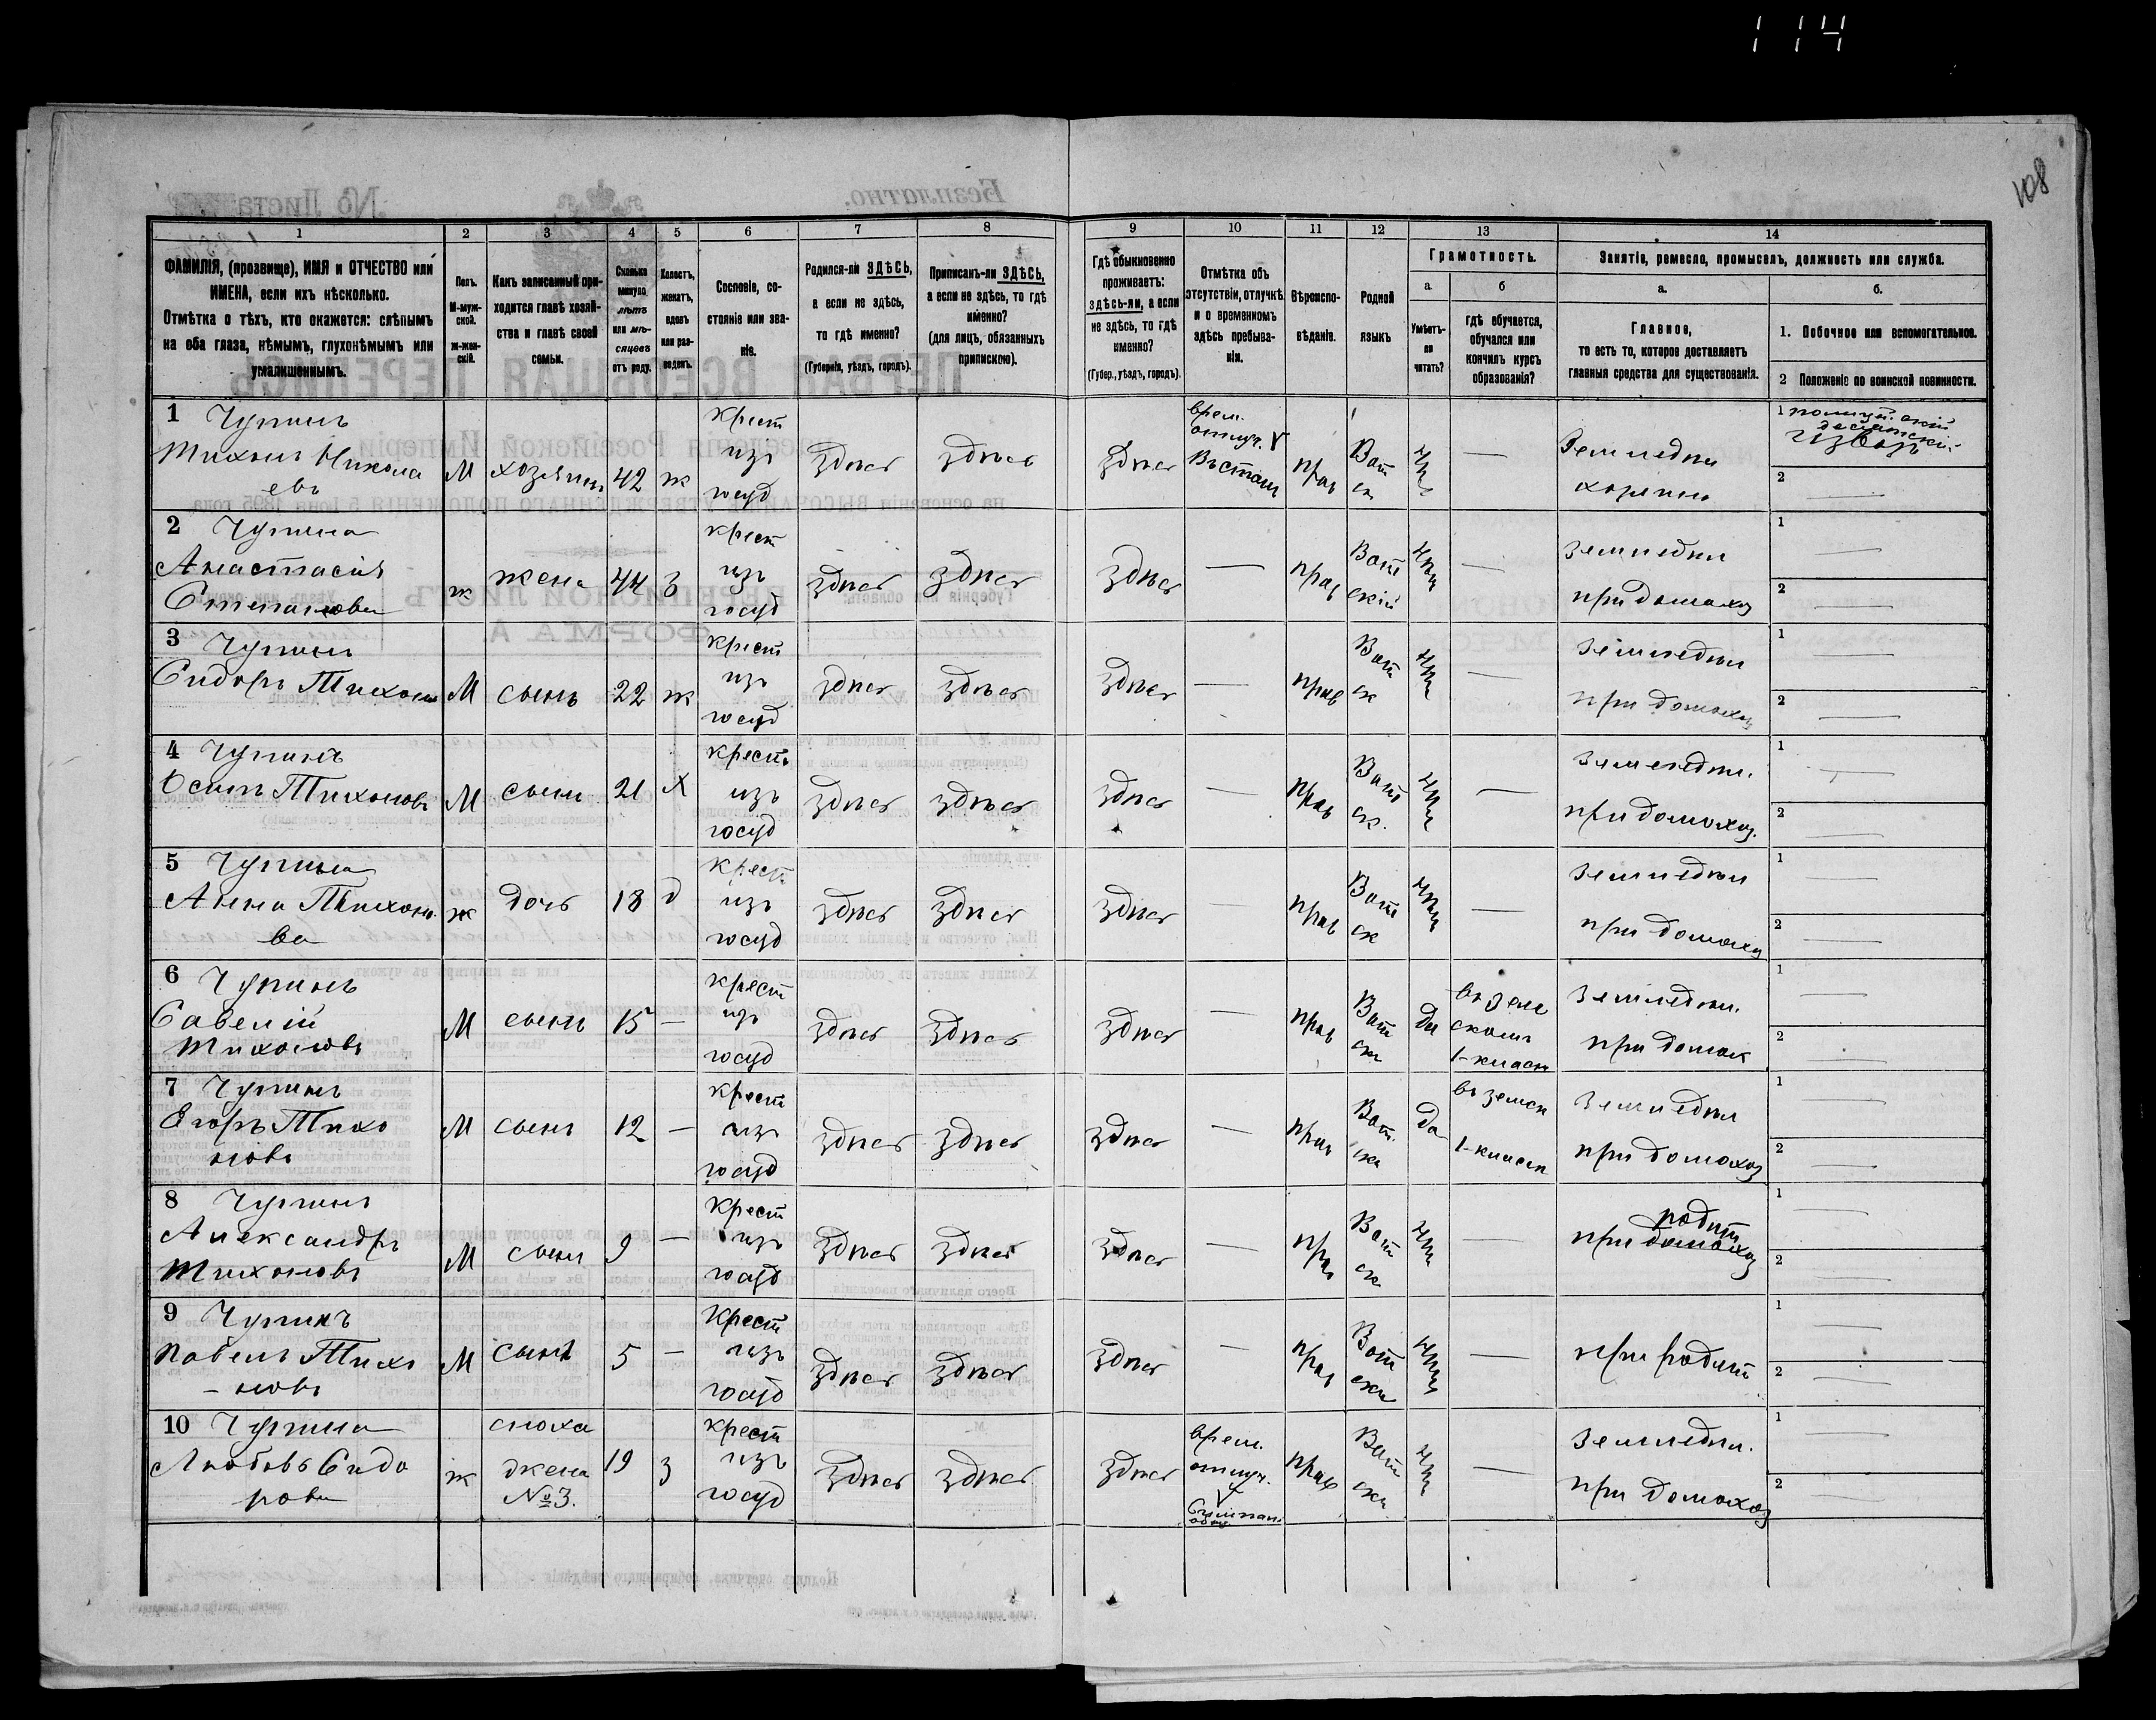 114
108
1
2
3
4
5
6
7
8
9
10
11
12
13
14
ФАМИЛІЯ, (прозвище), ИМЯ и ОТЧЕСТВО или
ИМЕНА, если ихъ нѣсколько.
Отмѣтка о тѣхъ, кто окажется: слѣпымъ
на оба глаза, нѣмымъ, глухонѣмымъ или
умалишеннымъ.
Полъ.
М-муж-
ской.
Ж-жен-
скій.
Какъ записанный при-
ходится главѣ хозяй-
ства и главѣ своей
семьи.
Сколько
минуло
лѣтъ
или мѣ-
сяцевъ
отъ роду.
Холостъ,
женатъ,
вдовъ
или раз-
веденъ.
Сословіе, со-
стояніе или зва-
ніе.
Родился-ли ЗДѢСЬ,
а если не здѣсь,
то гдѣ именно?
(Губернія, уѣздъ, городъ).
Приписанъ-ли ЗДѢСЬ,
а если не здѣсь, то гдѣ
именно?
(для лицъ, обязанныхъ
припискою).
Гдѣ обыкновенно
проживаетъ:
здѣсь-ли, а если
не здѣсь, то гдѣ
именно?
(Губер., уѣздъ, городъ).
Отмѣтка объ
отсутствіи, отлучкѣ
и о временномъ
здѣсь пребыва-
ніи.
Вѣроиспо-
вѣданіе.
Родной
языкъ
Грамотность.
а
Умѣетъ-
ли
читать?
б
гдѣ обучается,
обучался или
кончилъ курсъ
образованія?
Занятіе, ремесло, промыселъ, должность или служба.
а.
Главное,
то есть то, которое доставляетъ
главныя средства для существованія.
б.
1. Побочное или вспомогательное.
2 Положеніе по воинской повинности.
1 Чупинъ
Тихонъ Никола
евъ
М хозяинъ 42 ж
крест
изъ
госуд
здѣсь здѣсь здѣсь
врем.
отлуч. V
прав
Вот
ск
нѣт
—
Земледѣл
хозяинъ
1
2 —
2 Чупина
Анастасія
Степанова
ж жена 44 з
крест
изъ
госуд
здѣсь здѣсь здѣсь — прав
Вот
скій
нѣт
—
земледѣл
при домохоз
1 —
2 —
3 Чупинъ
Сидоръ Тихонов
М сынъ 22 ж
крест
изъ
госуд
здѣсь здѣсь здѣсь — прав
Вот
ск
нѣт
—
земледѣл
при домохоз
1 —
2 —
4 Чупинъ
Осипъ Тихоновъ
М сынъ 21 х
крест
изъ
госуд
здѣсь здѣсь здѣсь — прав
Вот
ск.
нѣт
—
земледѣл.
при домохоз.
1 —
2 —
5 Чупина
Анна Тихоно
ва
ж дочь 18 д
крест
изъ
госуд
здѣсь здѣсь здѣсь — прав
Вот
ск
нѣт
—
земледѣл
при домохоз
1 —
2 —
6 Чупинъ
Савелій
Тихоновъ
М сынъ 15 —
крест
изъ
госуд
здѣсь здѣсь здѣсь — прав
Вот
ск
да
въ зем
скомъ
1-класн
земледѣл.
при домох
1 —
2 —
7 Чупинъ
Егоръ Тихо
новъ
М сынъ 12 —
крест
изъ
госуд
здѣсь здѣсь здѣсь — прав
Вот.
ск
да
въ земск
1-класн
земледѣл
при домохоз
1 —
2 —
8 Чупинъ
Александръ
Тихоновъ
М сынъ 9 —
крест
изъ
госуд
здѣсь здѣсь здѣсь — прав
Вот
ск
нѣт
—
родит
при домохоз
1 —
2 —
9 Чупинъ
Павелъ Тихо
- новъ
М сынъ 5 —
Крест
изъ
госуд
здѣсь здѣсь здѣсь — прав
Вот
ск
нѣт
—
при родит
1 —
2 —
10 Чупина
Любовь Сидо
рова
ж
сноха
жена
№ 3.
19 з
крест
изъ
госуд
здѣсь здѣсь здѣсь
врем.
отлуч.
V
прав
Вот
ск
нѣт
—
земледѣл.
при домохоз
1 —
2 —